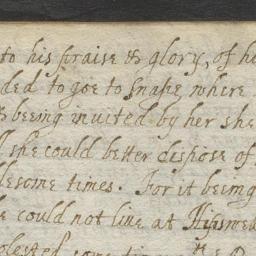 to his praise & glory, of he
ded to goe to Snape where
& beeing invited by her she
she could better dispose of
lesome times. For it beeing
e could not live at Hipswel
olested some time